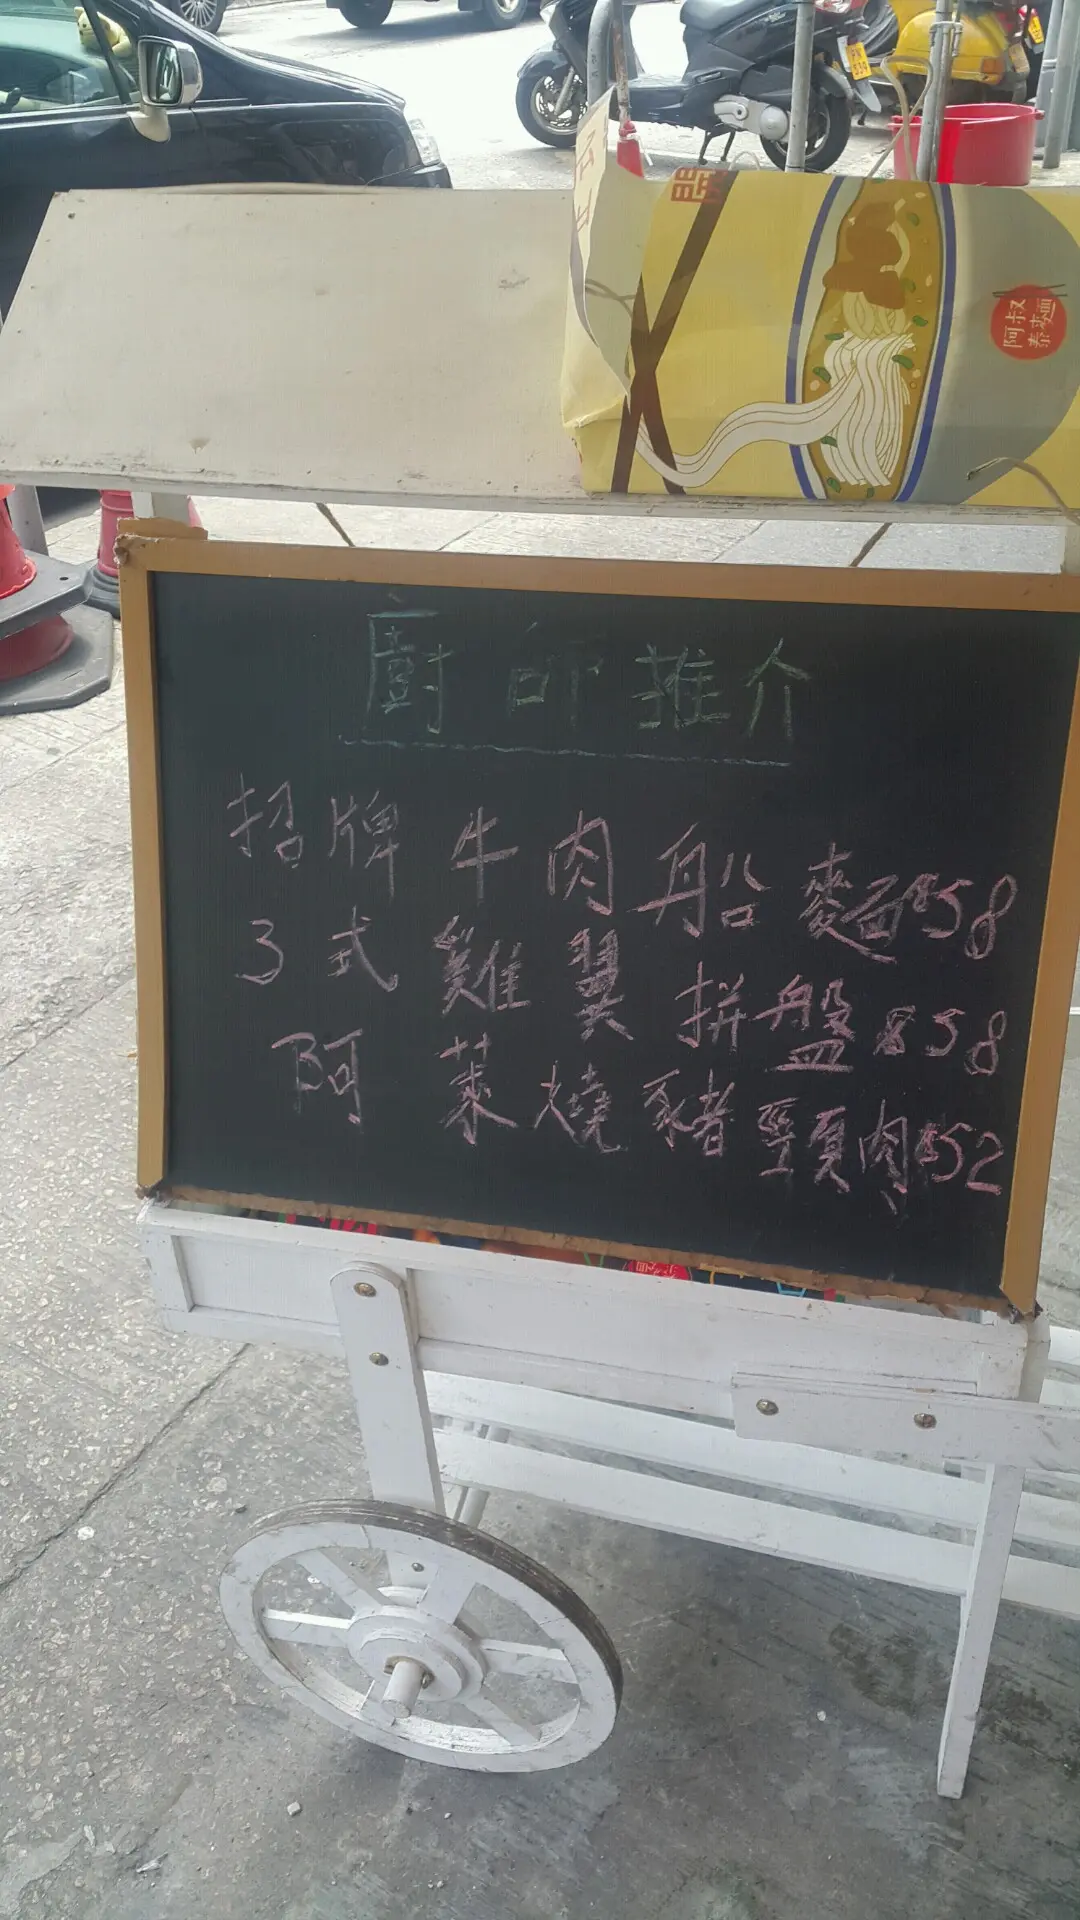 阿叔
泰麵
廚师推介
招牌牛肉船麵$58
3式雞翼拼盤$58
阿萊燒豬頸肉$52